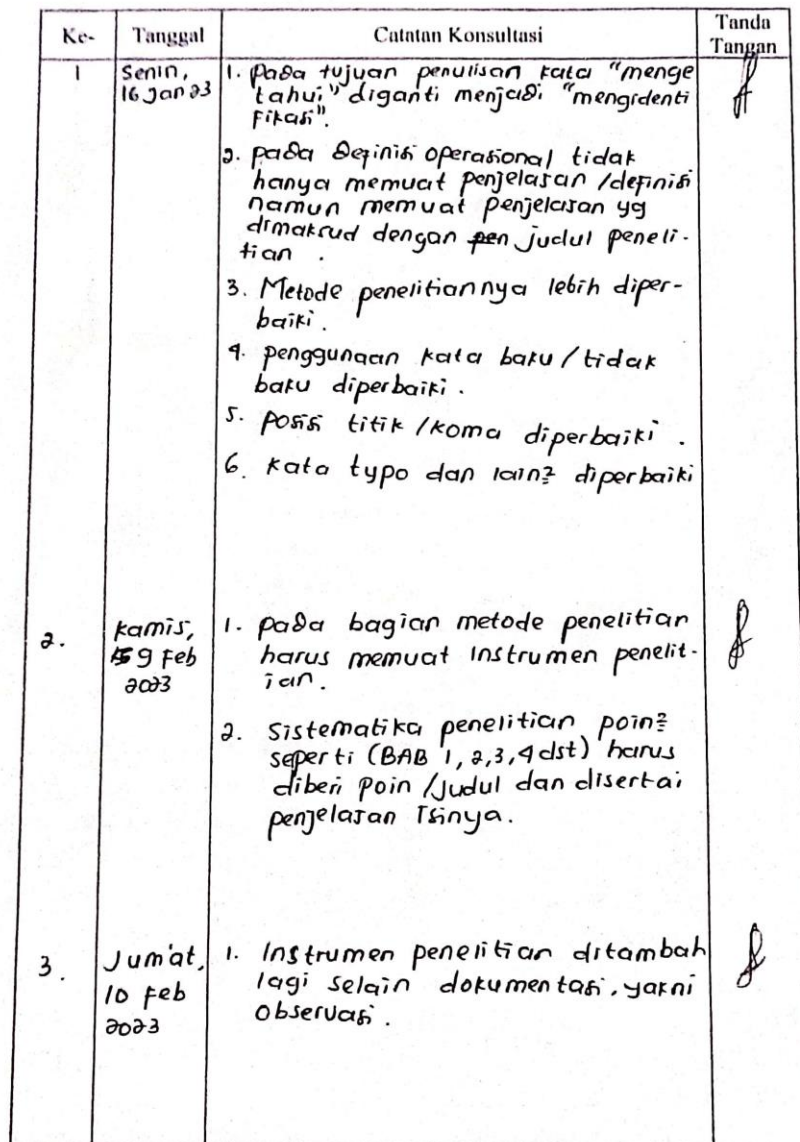 Ke- Tanggal Catatan Konsultasi Tanda Tangan
1 Senin, 16 Jan 23
1. Pada tujuan penulisan kata "menge
tahui" diganti menjadi "mengidenti
fikasi".
2. pada Definisi operasional tidak
hanya memuat penjelasan /definisi
namun memuat penjelasan yg
dimaksud dengan pen judul peneli-
tian .
3. Metode penelitiannya lebih diper-
baiki .
4. penggunaan kata baku / tidak
baku diperbaiki .
5. posisi titik /koma diperbaiki .
6. kata typo dan lain² diperbaiki
2. Kamis, 9 Feb 2023
1. pada bagian metode penelitian
harus memuat instrumen penelit-
ian.
2. Sistematika penelitian poin²
seperti (BAB 1, 2, 3, 4 dst) harus
diberi poin /Judul dan disertai
penjelasan Isinya.
3. Jum'at, 10 Feb 2023
1. Instrumen penelitian ditambah
lagi selain dokumentasi, yakni
Observasi .